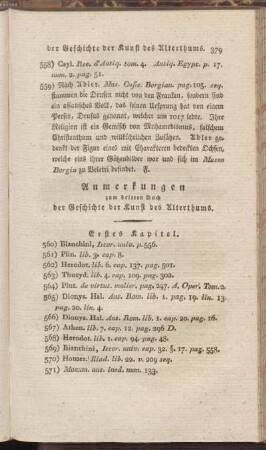 der Geschichte der Kunst des Alterthums. 379
558) Cayl. Rec. d'Antiq. tom. 4. Antiq. Egypt. p. 17.
num. 2. pag. 51.
559) Nach Adler. Mus. Cufic. Borgian. pag. 105. seq.
stammen die Drusen nicht von den Franken, sondern sind
ein asiatisches Volk, das seinen Ursprung hat von einem
Perser, Drusus genannt, welcher um 1017 lebte. Ihre
Religion ist ein Gemisch von Mehametismus, falschem
Christenthum und willkührlichen Zusätzen. Adler ge-
denkt der Figur eines mit Charakteren bedeckten Ochsen,
welche eins ihrer Götzenbilder war und sich im Museo
Borgia zu Veletri befindet. F.
Anmerkungen
zum dritten Buch
der Geschichte der Kunst des Alterthums.
Erstes Kapitel.
560) Bianchini, Istor. univ. p. 556.
561) Plin. lib. 3. cap. 8.
562) Herodot. lib. 6. cap. 137. pag. 501.
563) Thucyd. lib. 4. cap. 109. pag. 302.
564) Plut. de virtut. mulier. pag. 247. A. Oper. Tom. 2.
565) Dionys. Hal. Ant. Rom. lib. 1. pag. 19. lin. 13.
pag. 20. lin. 4.
566) Dionys. Hal. Ant. Rom. lib. 1. cap. 20. pag. 16.
567) Athen. lib. 7. cap. 12. pag. 296 D.
568) Herodot. lib. 1. cap. 94. pag. 48.
569) Bianchini, Istor. univ. cap. 32. §. 17. pag. 558.
570) Homer. Iliad. lib. 22. v. 209 seq.
571) Monum. ant. ined. num. 133.